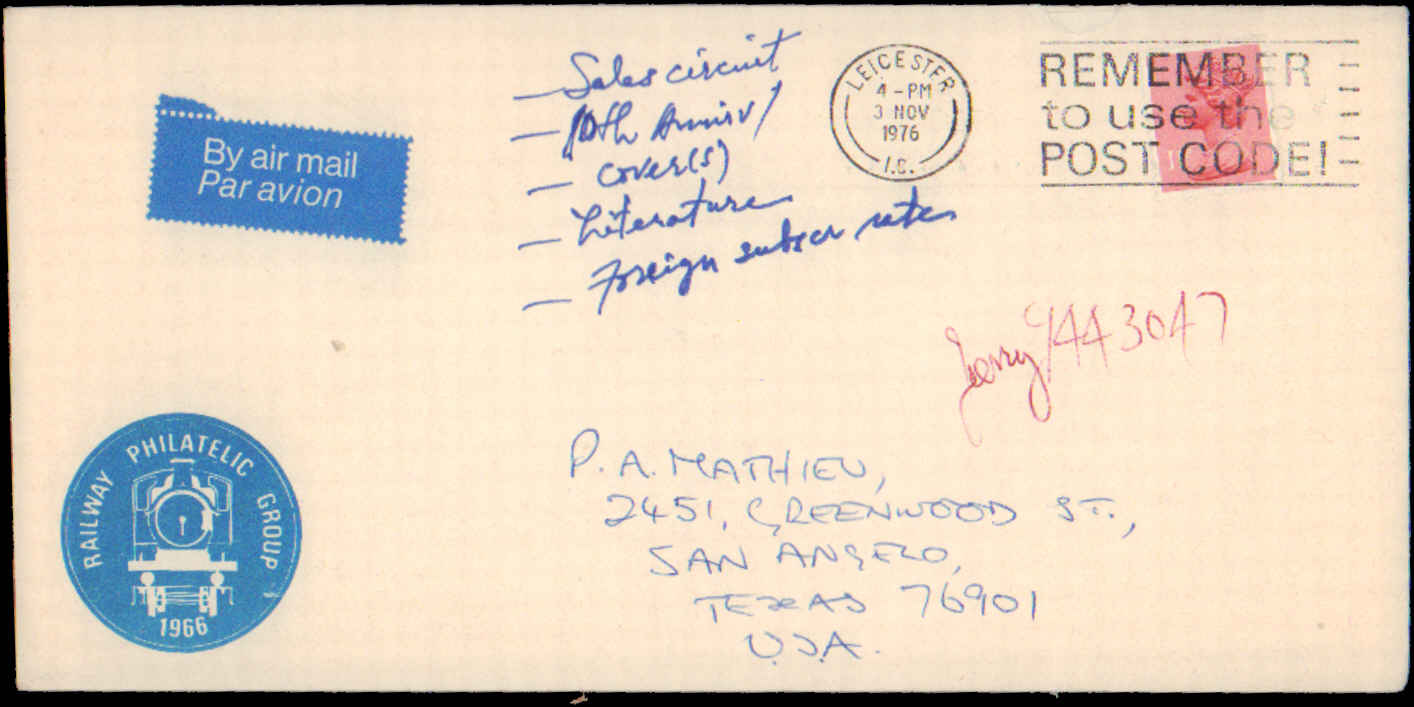 By air mail
Par avion
— Sales circuit
— 10th Anniv /
— cover(s)
— Literature
— Foreign subscr rates
LEICESTER
4 - PM
3 NOV
1976
REMEMBER
to use the
POST CODE!
Jerry 944 3047
P. A. MATHIEU,
2451, GREENWOOD ST.,
SAN ANGELO,
TEXAS 76901
U.S.A.
RAILWAY PHILATELIC GROUP
1966